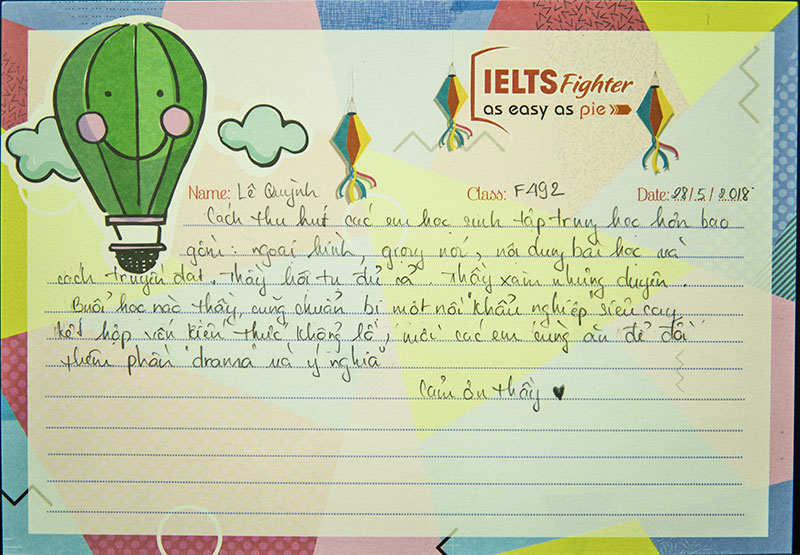 IELTS Fighter
as easy as pie
Name: Lê Quỳnh Class: F492 Date: 28/5/2018
Cách thu hút các em học sinh tập trung học hơn bao
gồm: ngoại hình, giọng nói, nội dung bài học và
cách truyền đạt. Thầy hội tụ đủ cả. Thầy xàm nhưng duyên.
Buổi học nào thầy cũng chuẩn bị một nồi "khẩu nghiệp" siêu cay
kết hợp với kiến thức khổng lồ, mời các em cùng ăn để đời
thêm phần "drama" và ý nghĩa
Cảm ơn thầy ♥